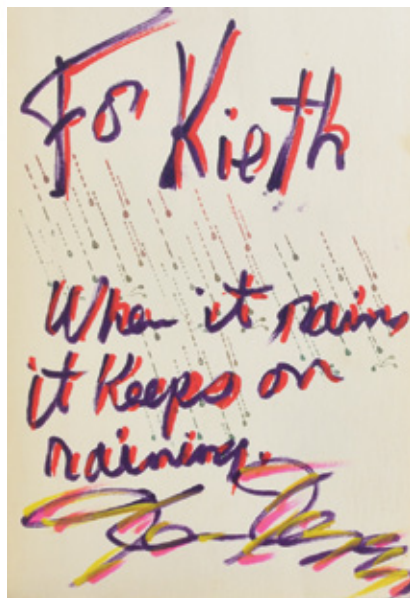 For Kieth
When it rains
it keeps on
raining.